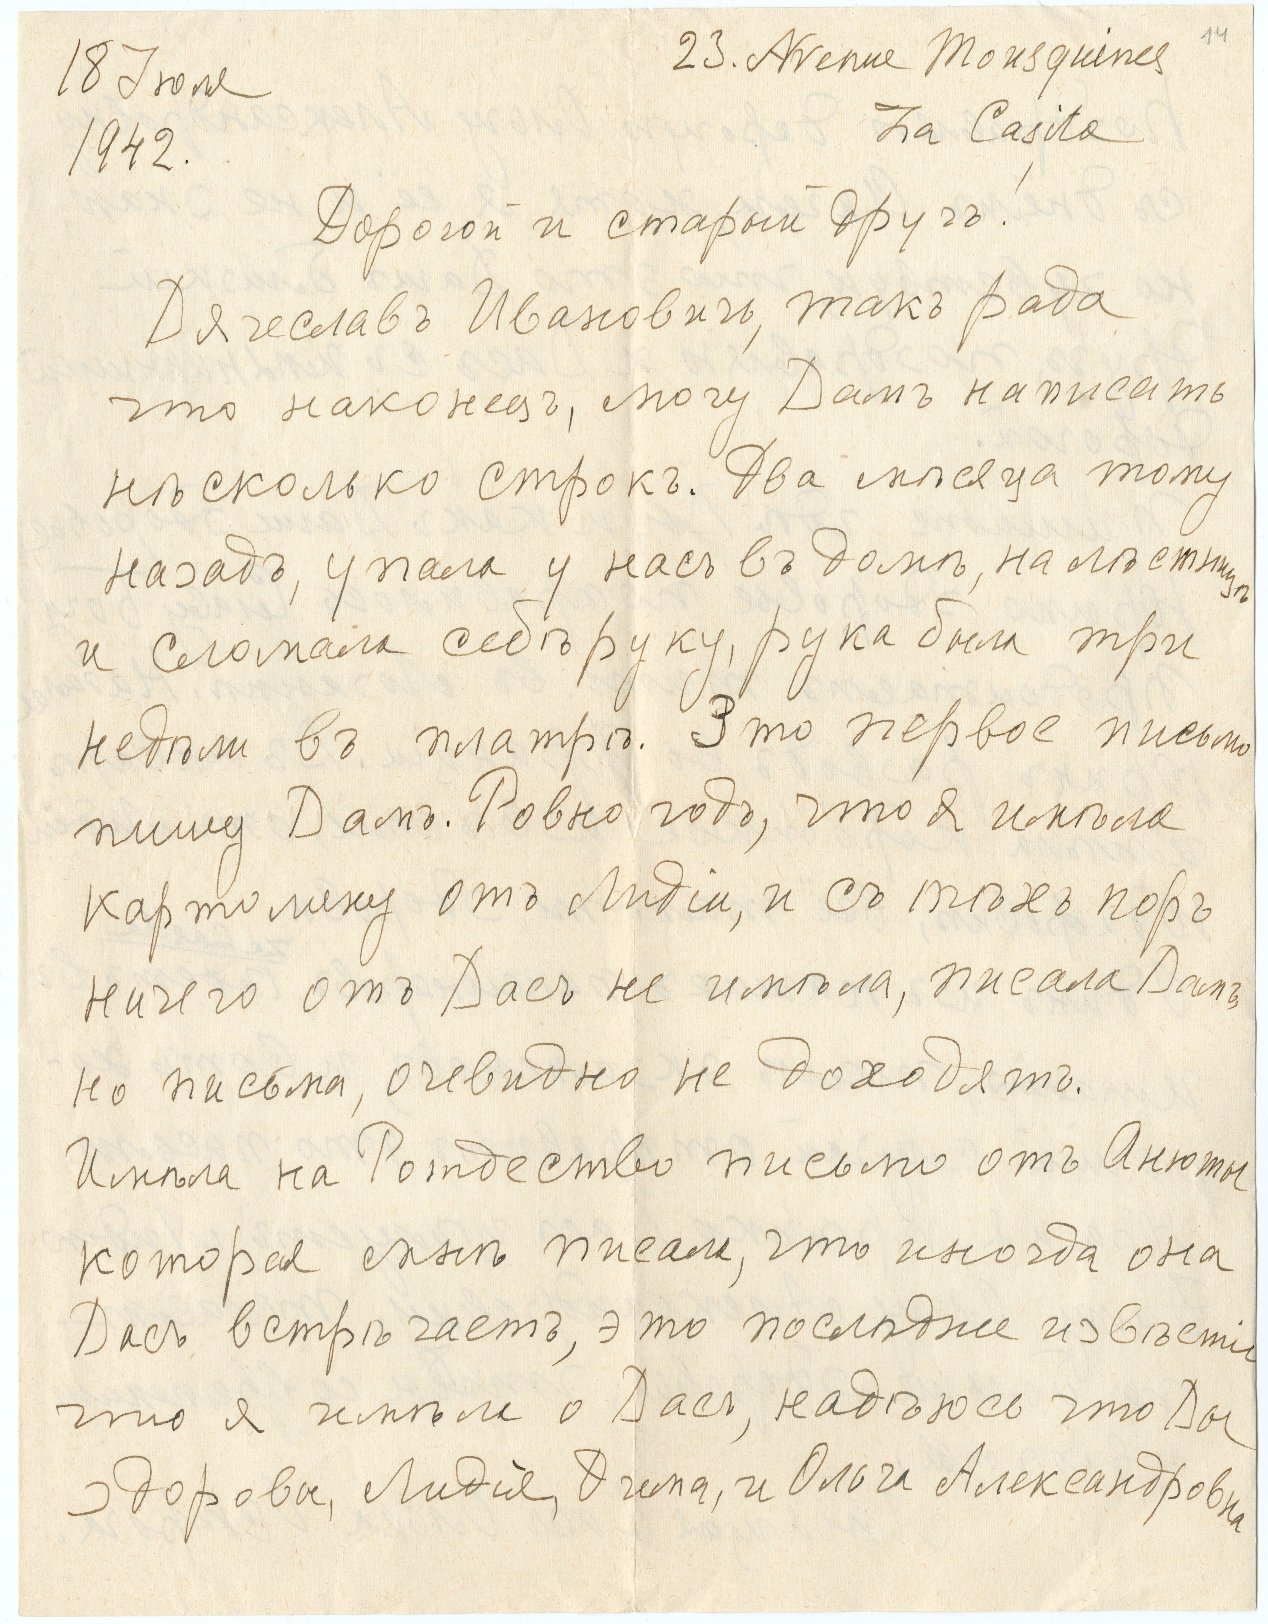 14
23. Avenue Mousquines
18 Іюля
La Casita
1942.
Дорогой и старый другъ!
Вячеславъ Ивановичъ, такъ рада
что наконецъ, могу Вамъ написать
нѣсколько строкъ. Два мѣсяца тому
назадъ, упала у насъ въ домѣ, на лѣстницѣ
и сломала себѣ руку, рука была три
недѣли въ платрѣ. Это первое письмо
пишу Вамъ. Ровно годъ, что я имѣла
картолину отъ Лидіи, и съ тѣхъ поръ
ничего отъ Васъ не имѣла, писала Вамъ
но письма, очевидно не доходятъ.
Имѣла на Рождество письмо отъ Анюты
которая мнѣ писала, что иногда она
Васъ встрѣчаетъ, это послѣднее извѣстіе
что я имѣла о Васъ, надѣюсь что Вы
здоровы, Лидія, Дима, и Ольга Александровна